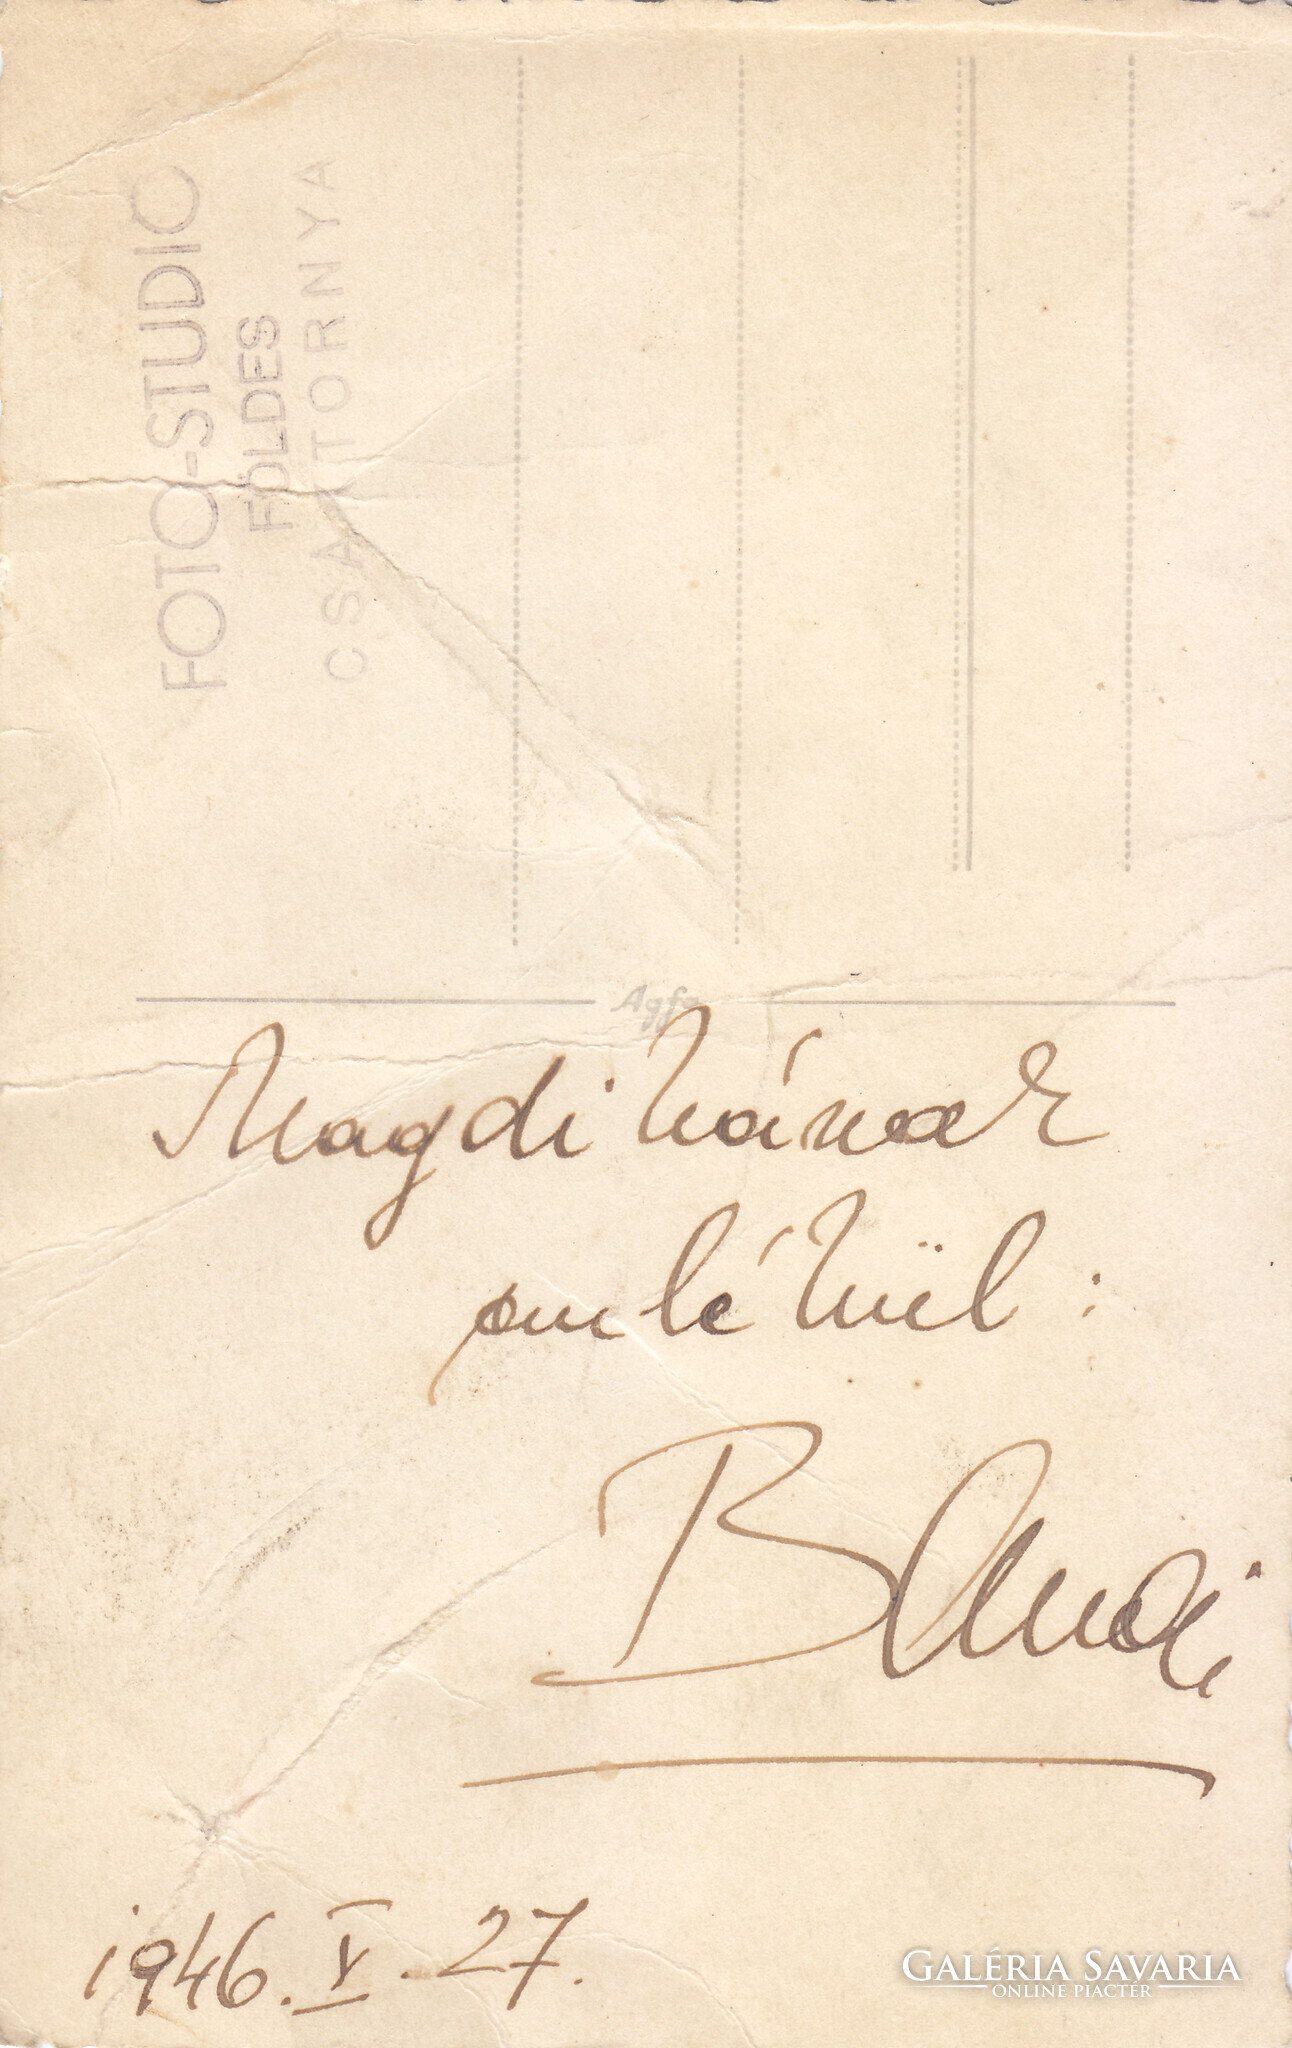 FOTO-STUDIO
FÖLDES
CSAKTORNYA
Agfa
Magdikának
emlékül:
Bandi
1946. V. 27.
GALÉRIA SAVARIA
ONLINE PIACTÉR